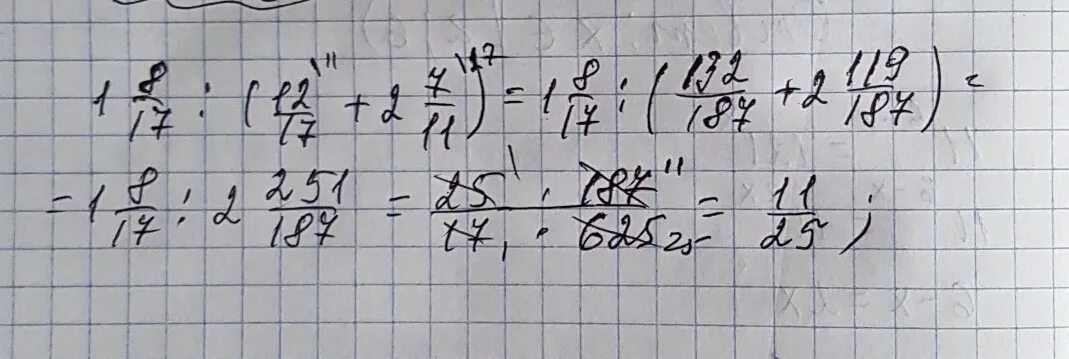 1 8/17 : (12/17 \11 + 2 7/11 \17) = 1 8/17 : (132/187 + 2 119/187) =
= 1 8/17 : 2 251/187 = 25 1 · 187 11 / 17 1 · 625 25 = 11/25 ;